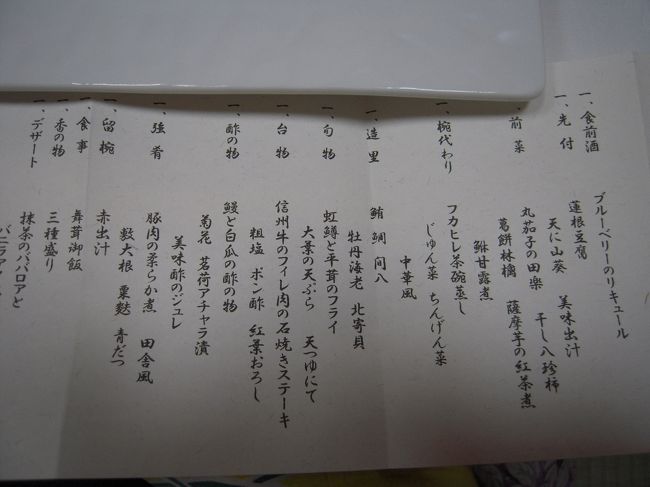 一、食前酒
ブルーベリーのリキュール
一、先付
蓮根豆腐　美味出汁
天に山葵　干し八珍柿
前菜
丸茄子の田楽
葛餅林檎　薩摩芋の紅茶煮
鮴甘露煮
一、椀代わり
フカヒレ茶碗蒸し
じゅん菜　ちんげん菜
中華風
一、造里
鮪　鯛　間八
牡丹海老　北寄貝
一、旬物
虹鱒と平茸のフライ
大葉の天ぷら　天つゆにて
一、台物
信州牛のフィレ肉の石焼きステーキ
粗塩　ポン酢　紅葉おろし
一、酢の物
鰻と白瓜の酢の物
菊花　茗荷アチャラ漬
美味酢のジュレ
一、強肴
豚肉の柔らか煮　田舎風
敷大根　粟麩　青だつ
一、留椀
赤出汁
一、食事
舞茸御飯
一、香の物
三種盛り
一、デザート
抹茶のババロアと